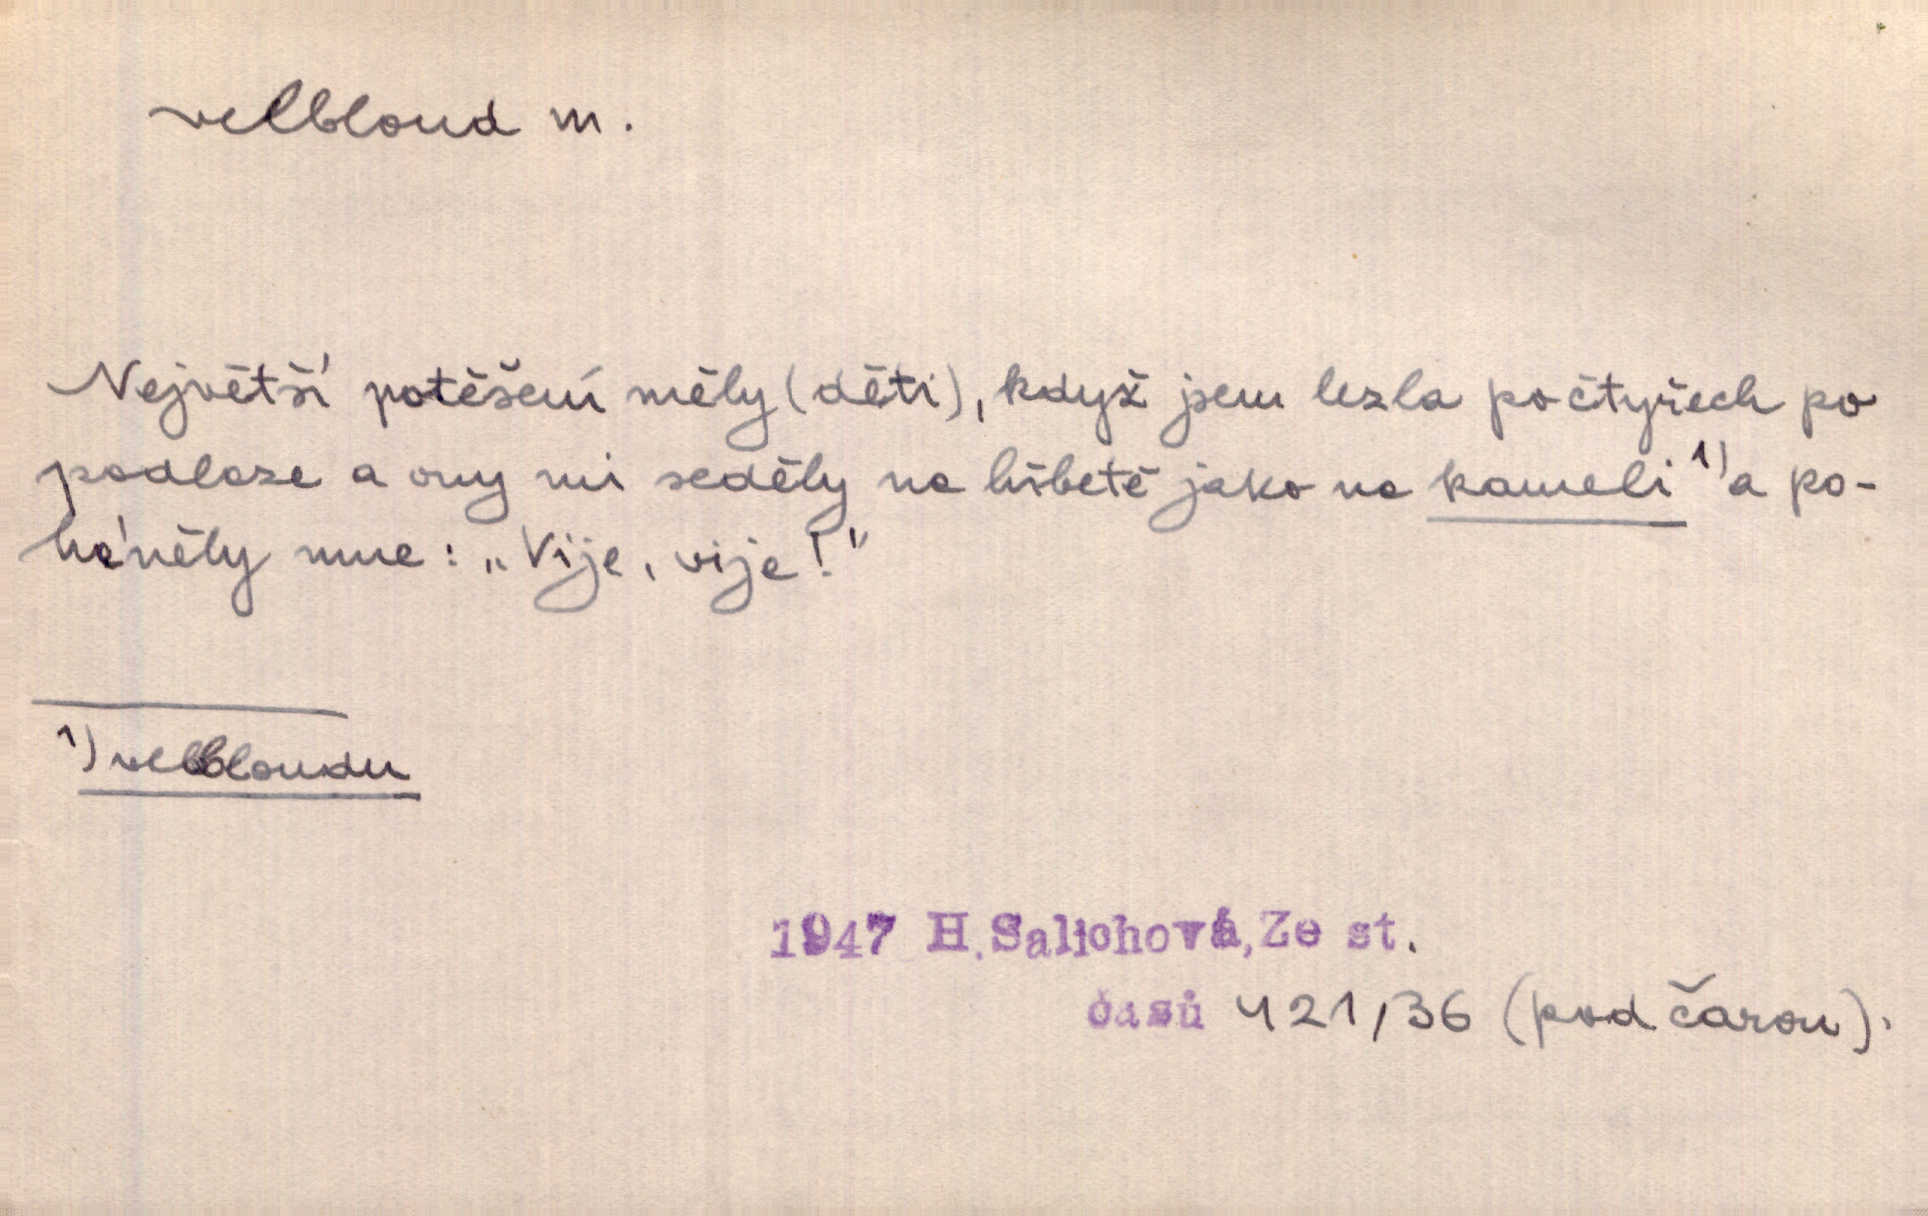 velbloud m.
Největší potěšení měly (děti), když jsem lezla po čtyřech po
podlaze a ony mi seděly na hřbetě jako na kameli ¹⁾ a po-
háněly mne: „Vije, vije!"
¹⁾ velbloudu
1947 H.Salichová,Ze st.
časů 421/36 (pod čarou).